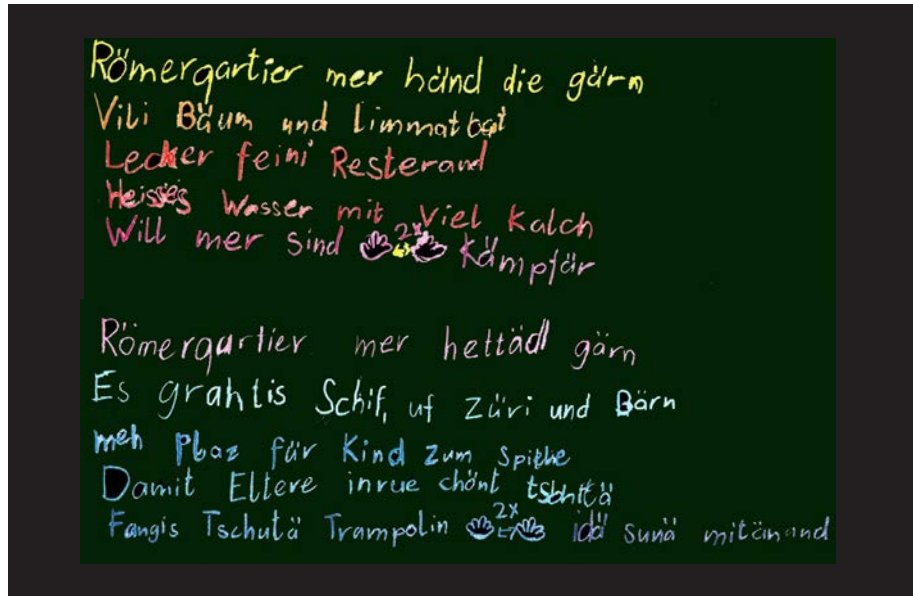 Römerqartier mer händ die gärn
Vili Bäum und Limmatbat
Lecker feini Resterand
Heisses Wasser mit Viel Kalch
Will mer sind 2x Kämpfär
Römerqartier mer hettäd gärn
Es grahtis Schif, uf Züri und Bärn
meh Plaz für Kind zum Spiehe
Damit Eltere inrue chönt
Fangis Tschutä Trampolin 2x idä sunä mitänand